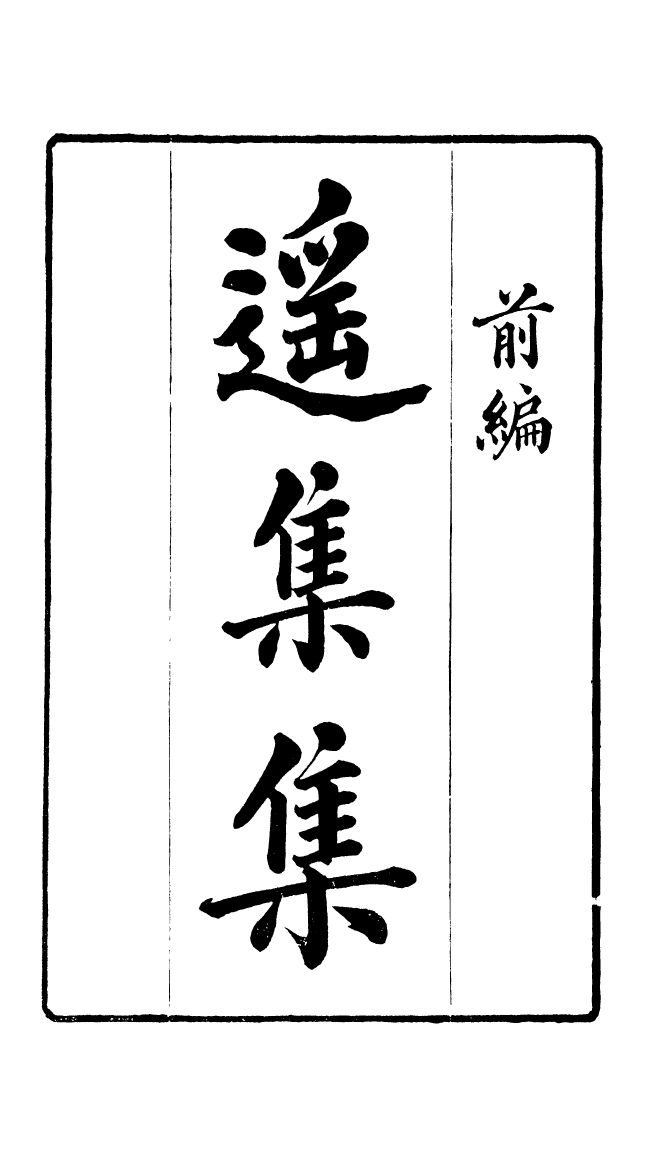 前編
遥集集